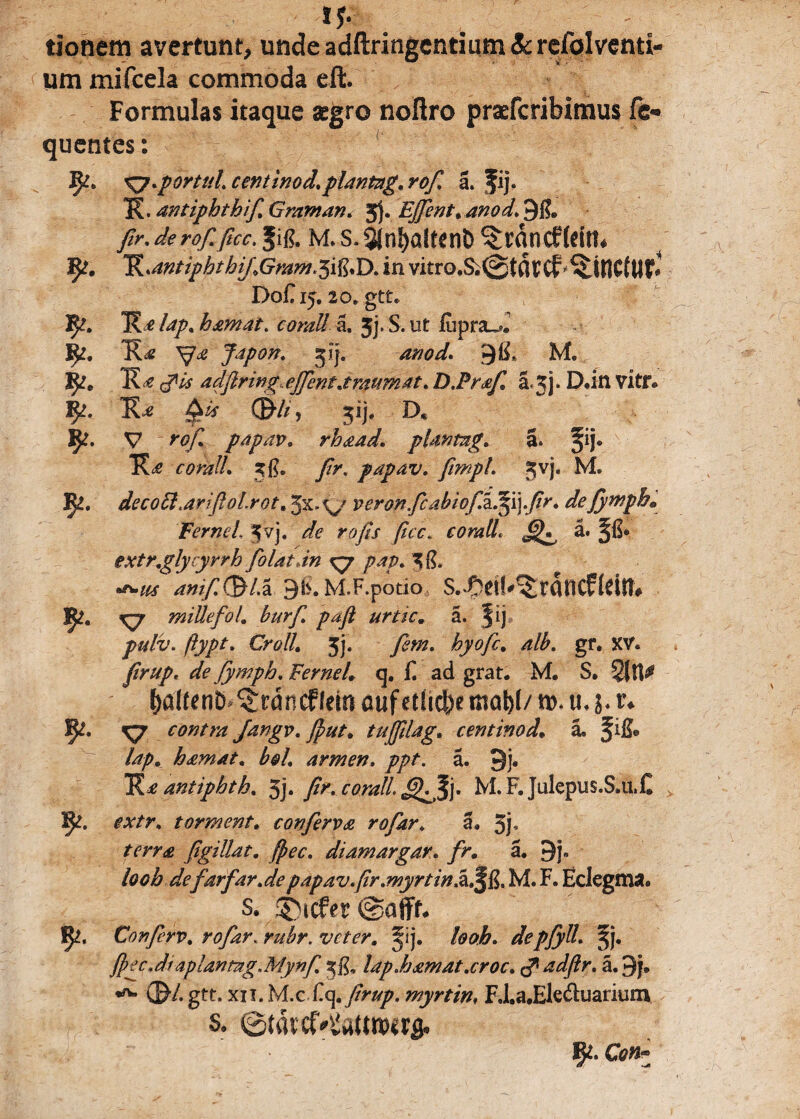 15.
tionem avertunt, unde adſtringentium & reſolventi-
um miſcela commoda eſt.
Formulas itaque ægro noſtro præſcribimus ſe-
quentes:
℞. 🜄.portul. centinod. plantag. roſ. ā. ℥ij.
R. antiphthiſ. Graman. ʒj. Eſſent. anod. ℈ß.
ſir. de roſ. ſicc. ℥iß. M. S. Anhaltend Träncklein.
℞. R.antiphthiſ.Gram.ʒiß.D. in vitro.S. Starck-Tinctur.
Doſ. 15. 20. gtt.
℞. Ræ lap. hæmat. corall ā. ʒj. S. ut ſupra.
℞. Ræ 🜃æ Japon. ʒij. anod. ℈ß. M.
℞. Ræ ♂is adſtring. eſſent.traumat. D.Præſ. ā.ʒj. D.in vitr.
℞. Ræ is li, ʒij. D.
℞. 🜄 roſ. papav. rhæad. plantag. ā. ℥ij.
Ræ corall. ʒß. ſir. papav. ſimpl. ʒvj. M.
℞. decoct.ariſtol.rot. ʒx. 🜄 veron.ſcabioſ.ā.℥ij.ſir. de ſymph.
Fernel. ʒvj. de roſis ſicc. corall. ā. ℥ß.
extr.glycyrrh ſolat.in 🜄 pap. ʒß.
us aniſ. l.ā ℈ß. M.F.potio. S. Heil-Träncklein.
℞. 🜄 millefol. burſ. paſt urtic. ā. ℥ij
pulv. ſtypt. Croll. ʒj. ſem. hyoſc. alb. gr. xv.
ſirup. de ſymph. Fernel. q. ſ. ad grat. M. S. An-
haltend-Träncklein auf etliche mahl/ w. u. z. r.
℞. 🜄 contra ſangv. ſput. tuſſilag. centinod. ā. ℥iß.
lap. hæmat. bol. armen. ppt. ā. ℈j.
Ræ antiphth. ʒj. ſir. corall. ℥j. M. F. Julepus.S.u.ſ.
℞. extr. torment. conſervæ roſar. ā. ʒj.
terræ ſigillat. ſpec. diamargar. fr. ā. ℈j.
looh de farfar.de papav.ſir.myrtin.ā.℥ß. M. F. Eclegma.
S. Dicker Safft.
℞. Conſerv. roſar. rubr. veter. ℥ij. looh. de pſyll. ℥j.
ſpec.diaplantag.Mynſ. ʒß. lap.hæmat.croc. ♂ adſtr. ā. ℈j.
l. gtt. xii. M.c ſ.q. ſirup. myrtin. F.l.a.Electuarium
S. Starck-Lattwerg.
℞. Con-